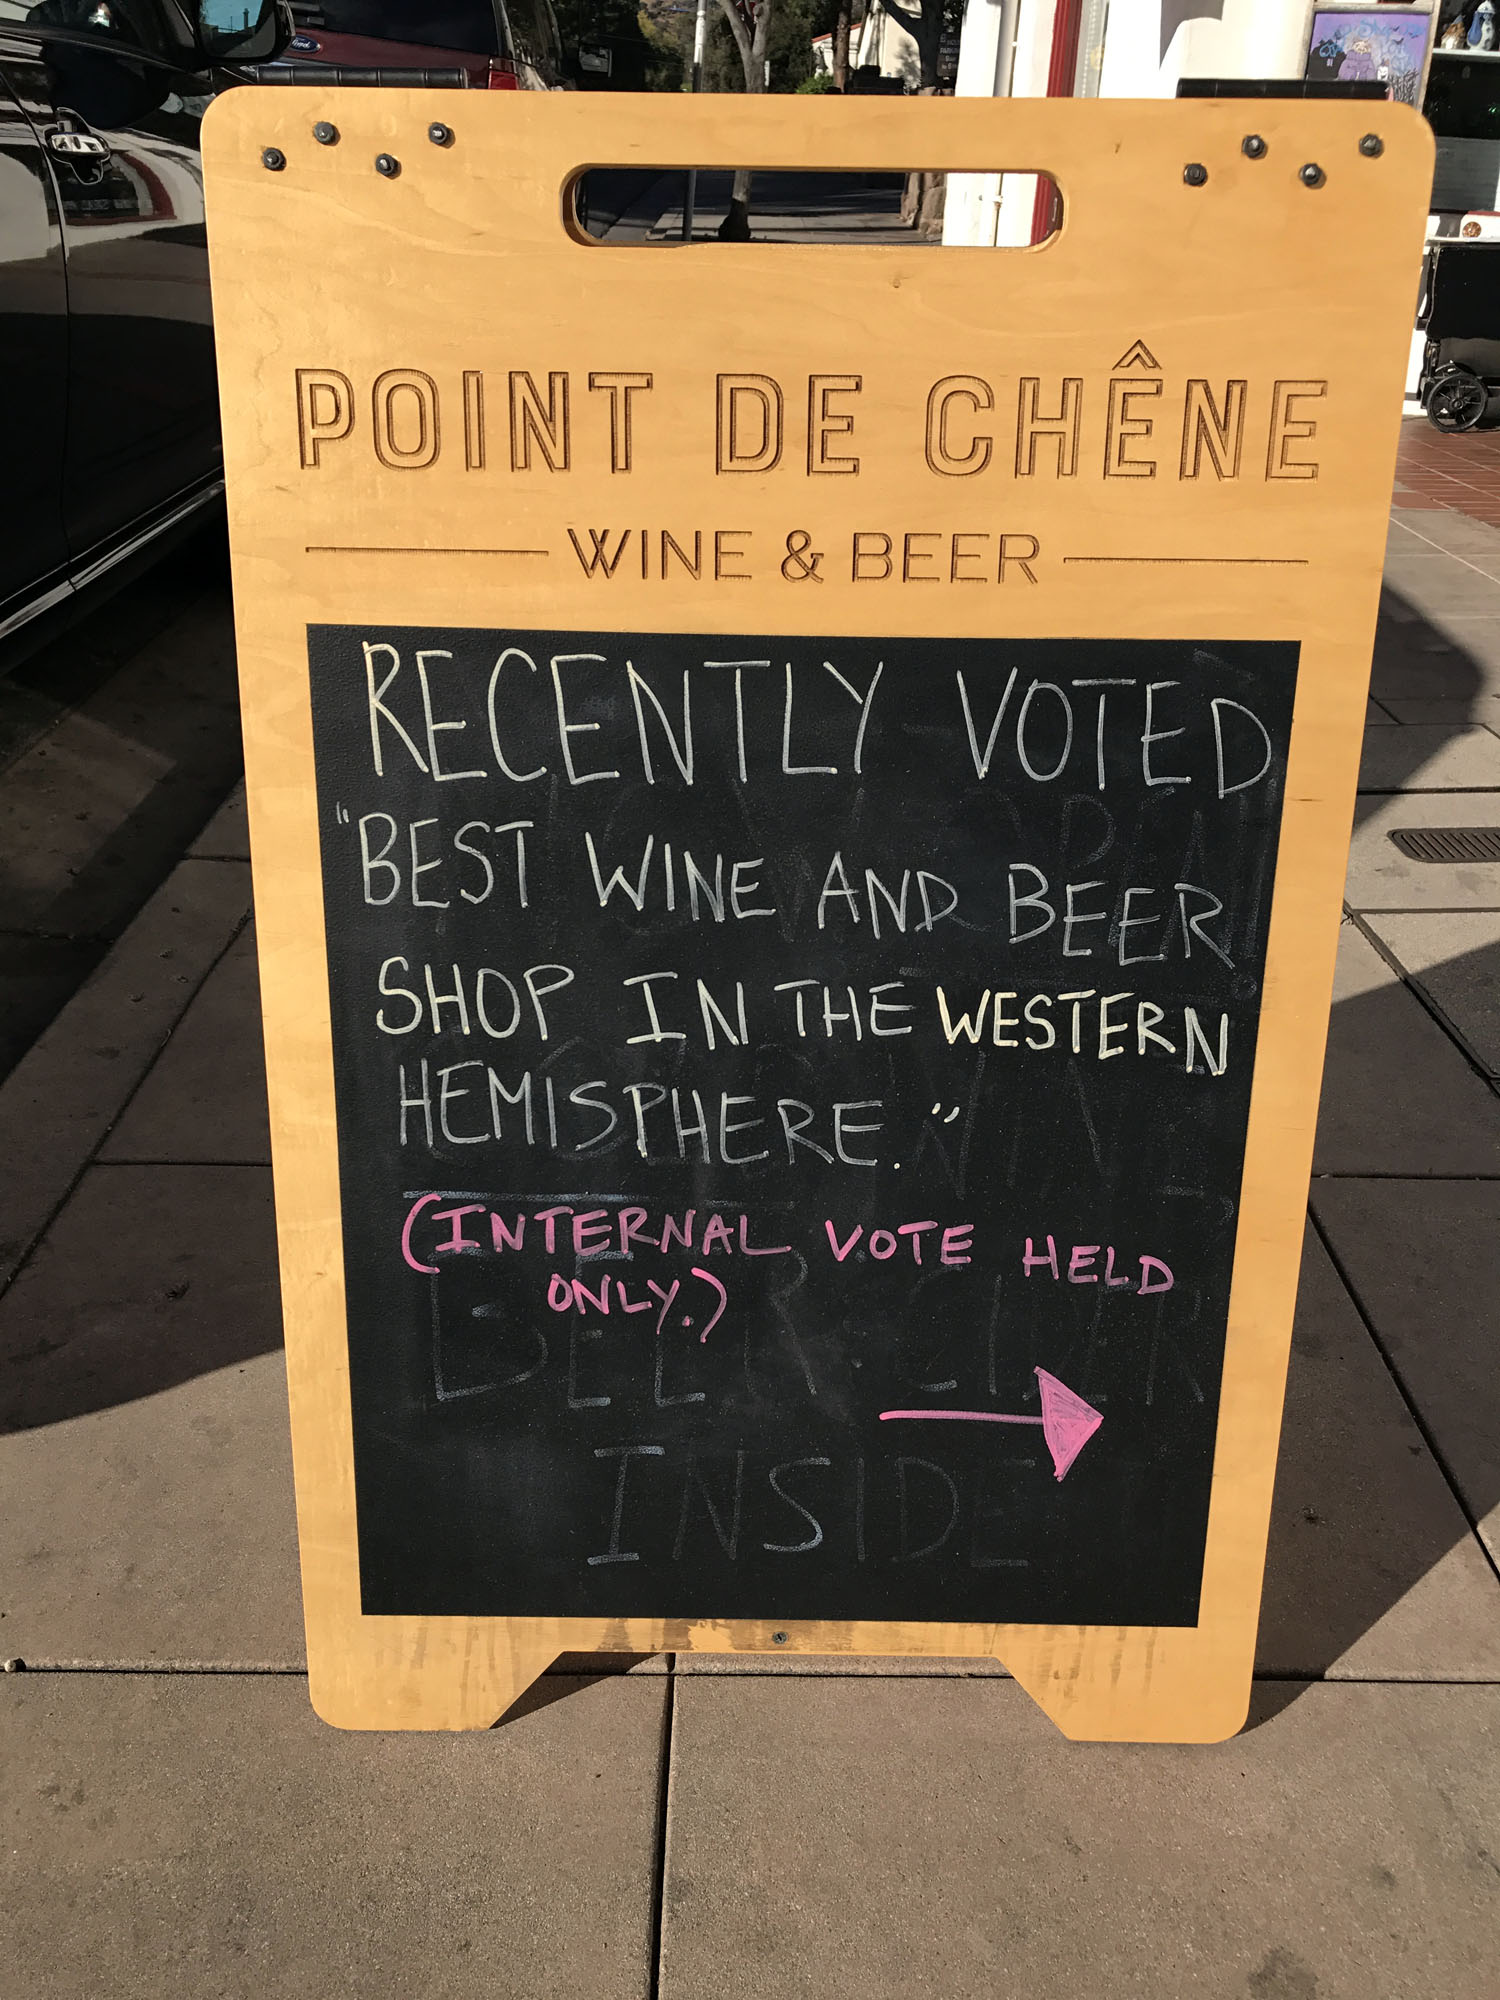 POINT DE CHÊNE
WINE & BEER
RECENTLY VOTED
"BEST WINE AND BEER
SHOP IN THE WESTERN
HEMISPHERE."
(INTERNAL VOTE HELD
ONLY.)
BEER CIDER
INSIDE
Ford